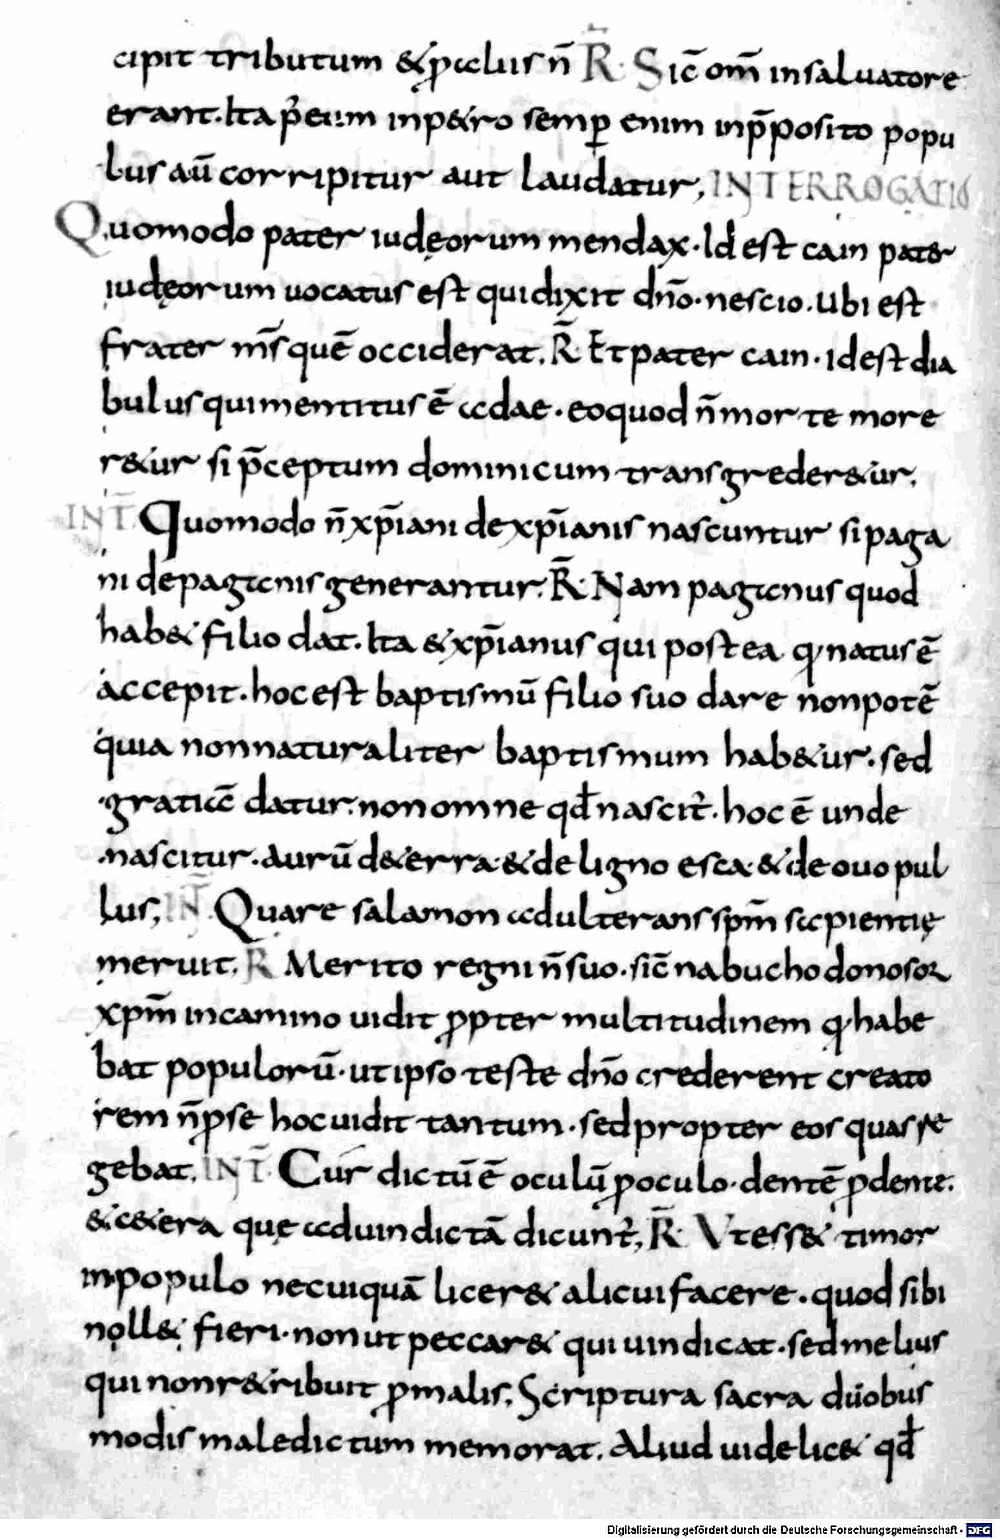 cipit tributum & p̄ cclus n̄ R̄. Sic̄ om̄ in saluatore
erant. Ita p̄ eum in p&ro semꝑ enim in p̄posito popu
lus aū corripitur aut laudatur; INTERROGATIO
Quomodo pater iudęorum mendax. Id est cain pater
iudęorum uocatus est qui dixit dn̄o. nescio. ubi est
frater m̄s quē occiderat. R̄. Et pater cain. id est dia
bulus qui mentitus ē adae. eo quod n̄ morte more
r&ur si p̄ceptum dominicum transgreder&ur.
INT̄. Quomodo n̄ xp̄iani de xp̄ianis nascuntur si paga
ni de paganis generantur. R̄. Nam paganus quod
hab& filio dat. Ita & xp̄ianus qui postea q natus ē
accepit. hoc est baptismū filio suo dare non potē
quia non naturaliter baptismum hab&ur. sed
gratiae datur. non omne qđ nascit̄. hoc ē unde
nascitur. aurū de terra. & de ligno esca. & de ouo pul
lus; INT̄. Quare salamon adulterans sp̄m sapientię
meruit. R̄ Merito regni n̄ suo. sic̄ nabuchodonosor
xp̄m in camino uidit ꝓpter multitudinem q habe
bat populorū. ut ipso teste dn̄o crederent creato
rem n̄ ꝓ se hoc uidit tantum. sed propter eos quas re
gebat. INT̄. Cur dictū ē oculū ꝓ oculo. dentē ꝓ dente.
& c&era quę ad uindictā dicunt̄; R̄. Ut ess& timor
in populo ne cuiquā licer& alicui facere. quod sibi
noll& fieri. non ut peccar& qui uindicat. sed melius
qui non r&ribuit ꝓ malis; Scriptura sacra duobus
modis maledictum memorat. Aliud uidelic& qđ
Digitalisierung gefördert durch die Deutsche Forschungsgemeinschaft - DFG